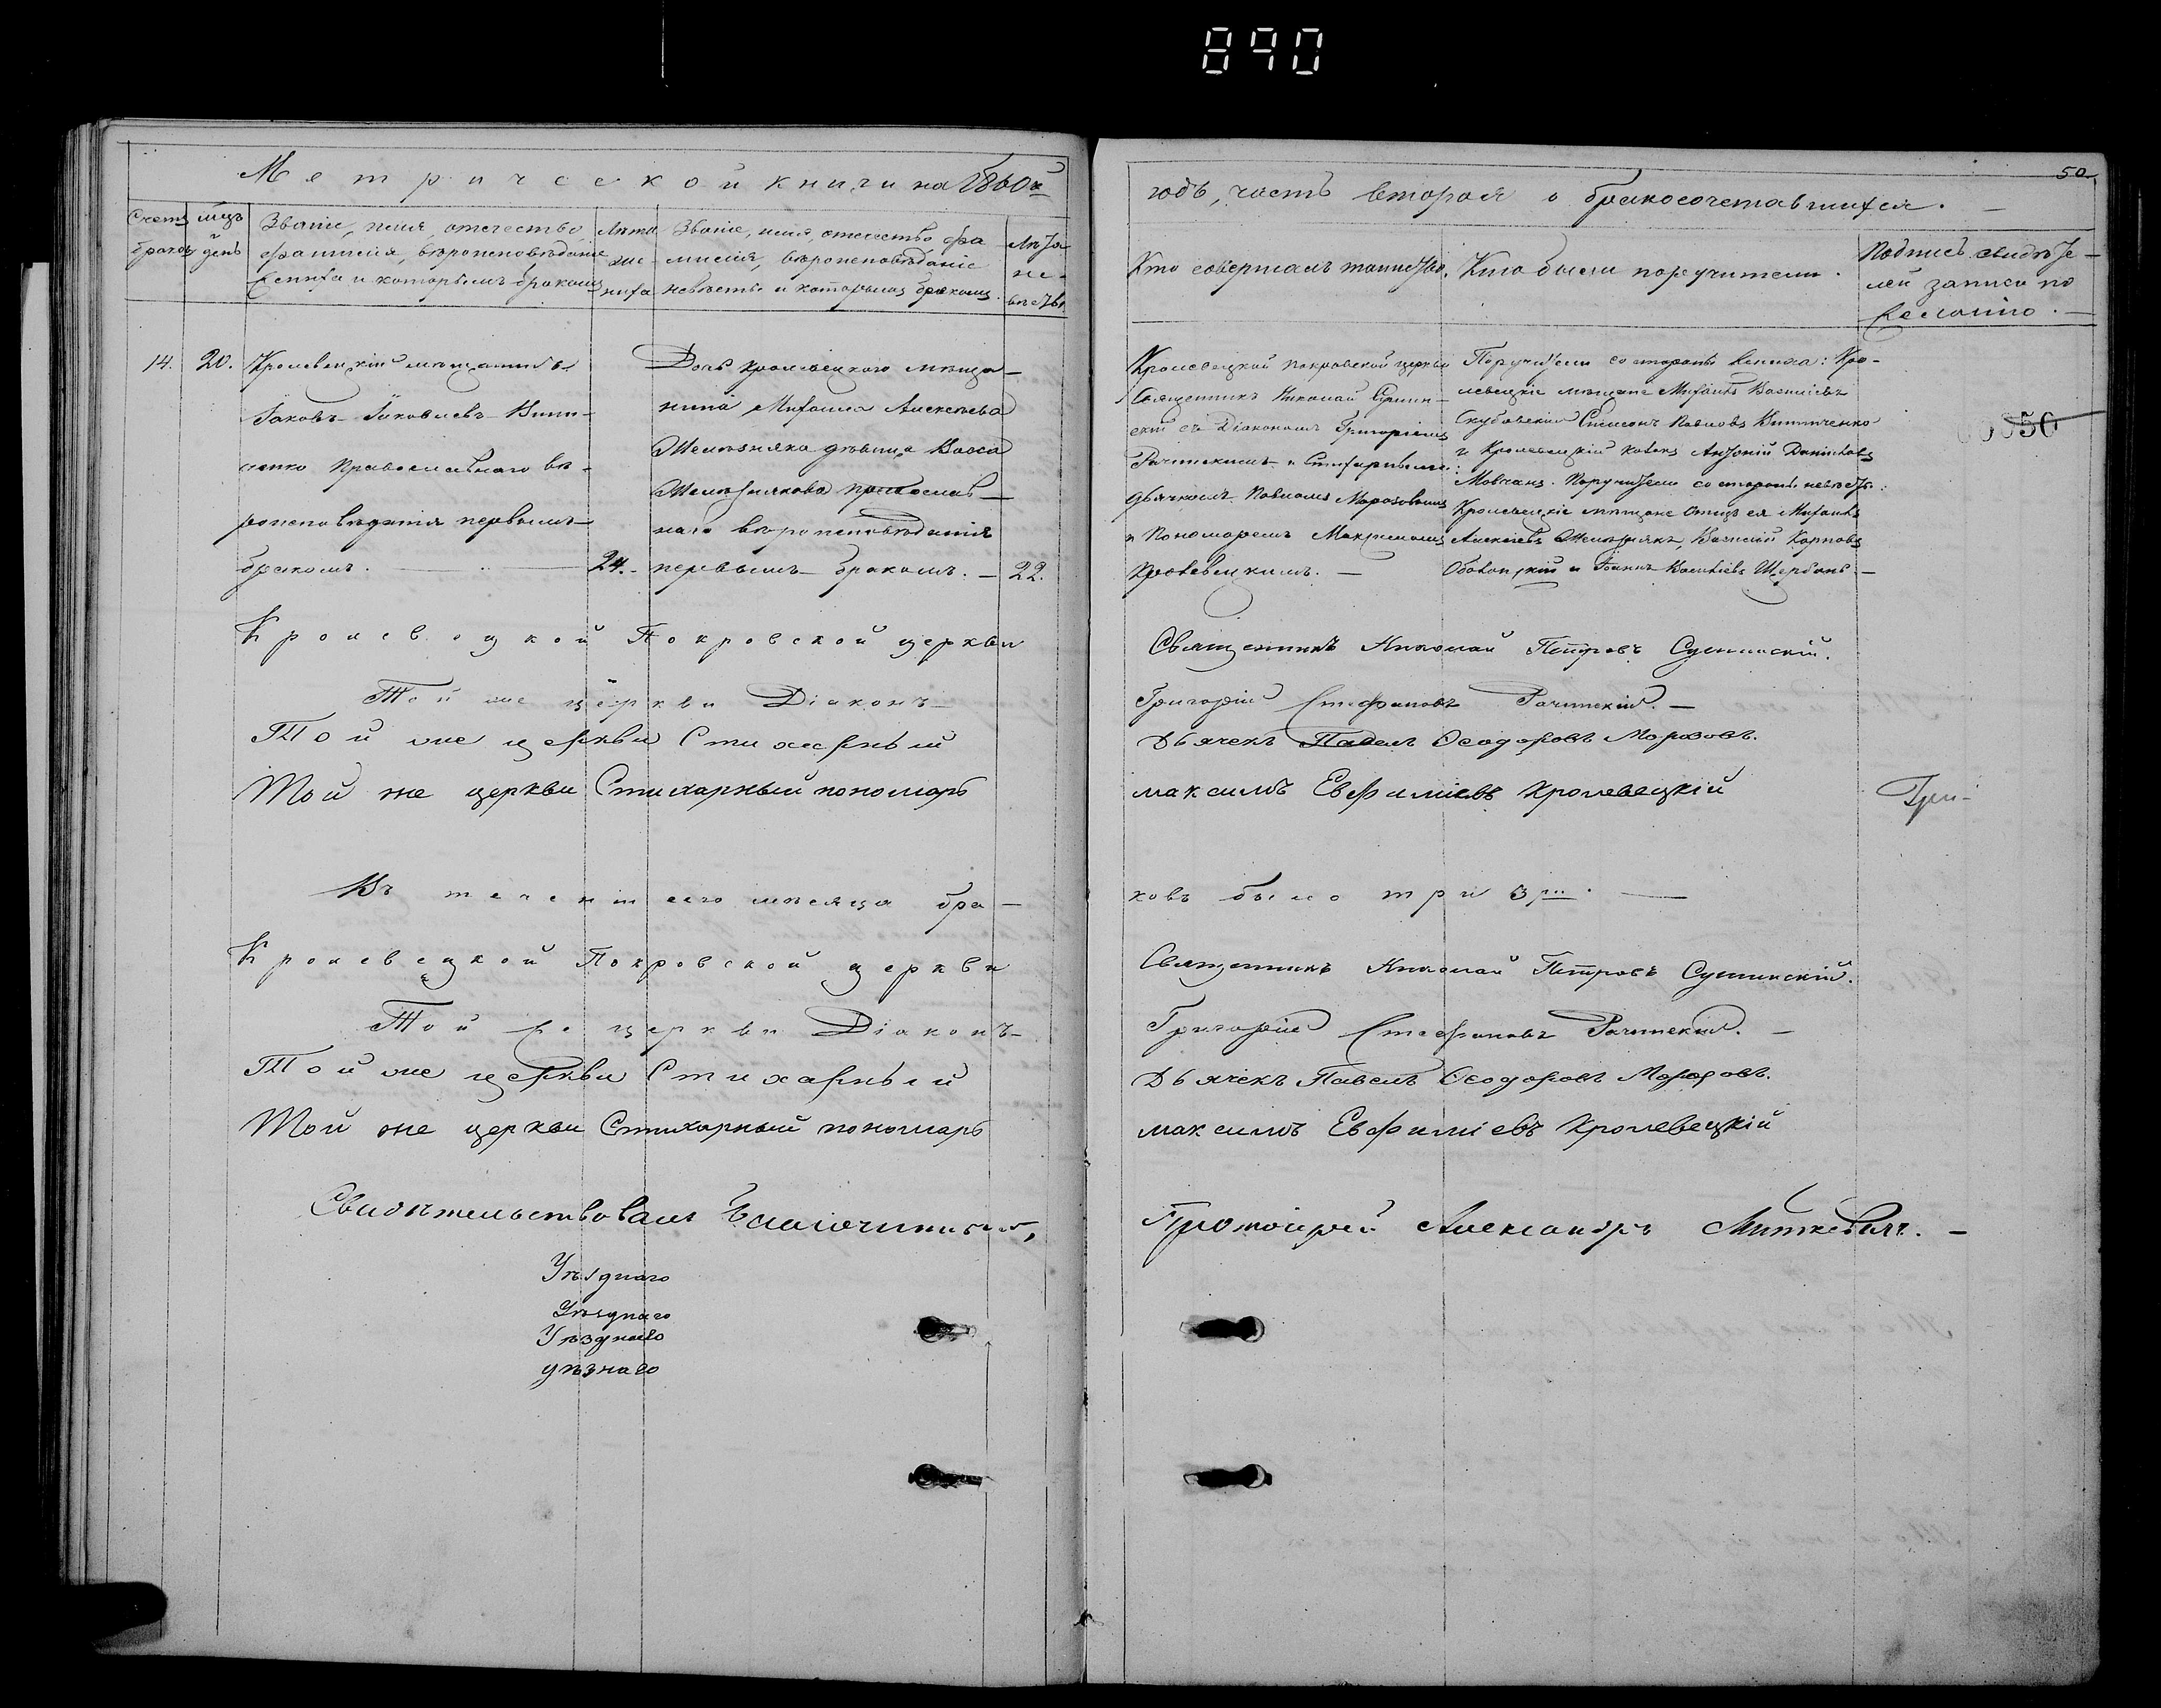 890
Метрической книги на 1860й
Счетъ браковъ
мцъ и день
Званіе, имя, отечество, фамилія, вѣроисповѣданіе жениха и которымъ бракомъ
Лѣта жениха
Званіе, имя, отечество фамилія, вѣроисповѣданіе невѣсты и которымъ бракомъ.
Лѣта невѣсты
14.
20.
Кролевецкій мѣщанинъ
Іаковъ Іаковлевъ Вини-
ченко Православнаго вѣ-
роисповѣданія первымъ
бракомъ.
24.
Дочь Кролевецкого мѣща-
нина Михаила Алексѣева
Желѣзняка дѣвица Васса
Желѣзнякова православ-
наго вѣроисповѣданія
первымъ бракомъ. —
22.
Кролевецкой Покровской церкви
Той же церкви Діаконъ
Той же церкви Стихарный
Той же церкви Стихарный пономарь
Въ теченіи сего мѣсяца бра-
Кролевецкой Покровской церкви
Той же церкви Діаконъ
Той же церкви Стихарный
Той же церкви Стихарный пономарь
Свидѣтельствовалъ Благочинный,
Уѣзднаго
Уѣзднаго
Уѣзднаго
уѣзнаго
50
годъ, часть вторая о бракосочетавшихся. —
Кто совершалъ таинство.
Кто были поручители.
Подпись свидѣте-
лей записи по
желанію. —
Кролевецкой Покровской церкви
Священникъ Николай
съ Діакономъ Григоріемъ
Рачинскимъ и Стихарными:
дьячкомъ Павломъ Морозовымъ
и Пономаремъ Максимомъ
Кролевецкимъ. —
Поручители со стороны жениха: Кро-
левецкіе мѣщане Михаилъ Василіевъ
Симеонъ Павловъ Винниченко
и Кролевецкій Антоній
Мовчанъ. Поручители со стороны невѣсты:
Кролевецкіе мѣщане Отецъ ея Михаилъ
Алексѣевъ Желѣзнякъ, Василій Карповъ
и Іоаннъ Щербань. —
50
Священникъ Николай Петровъ Сушинскій.
Григорій Стефановъ Рачинскій. —
Дьячекъ Павелъ Ѳеодоровъ Морозовъ.
максимъ Евфиміевъ Кролевецкій
ковъ было три 3
Священникъ Николай Петровъ Сушинскій.
Григорій Стефановъ Рачинскій. —
Дьячекъ Павелъ Ѳеодоровъ Морозовъ.
максимъ Евфиміевъ Кролевецкій
Протоіерей Александръ Миткевичъ. —